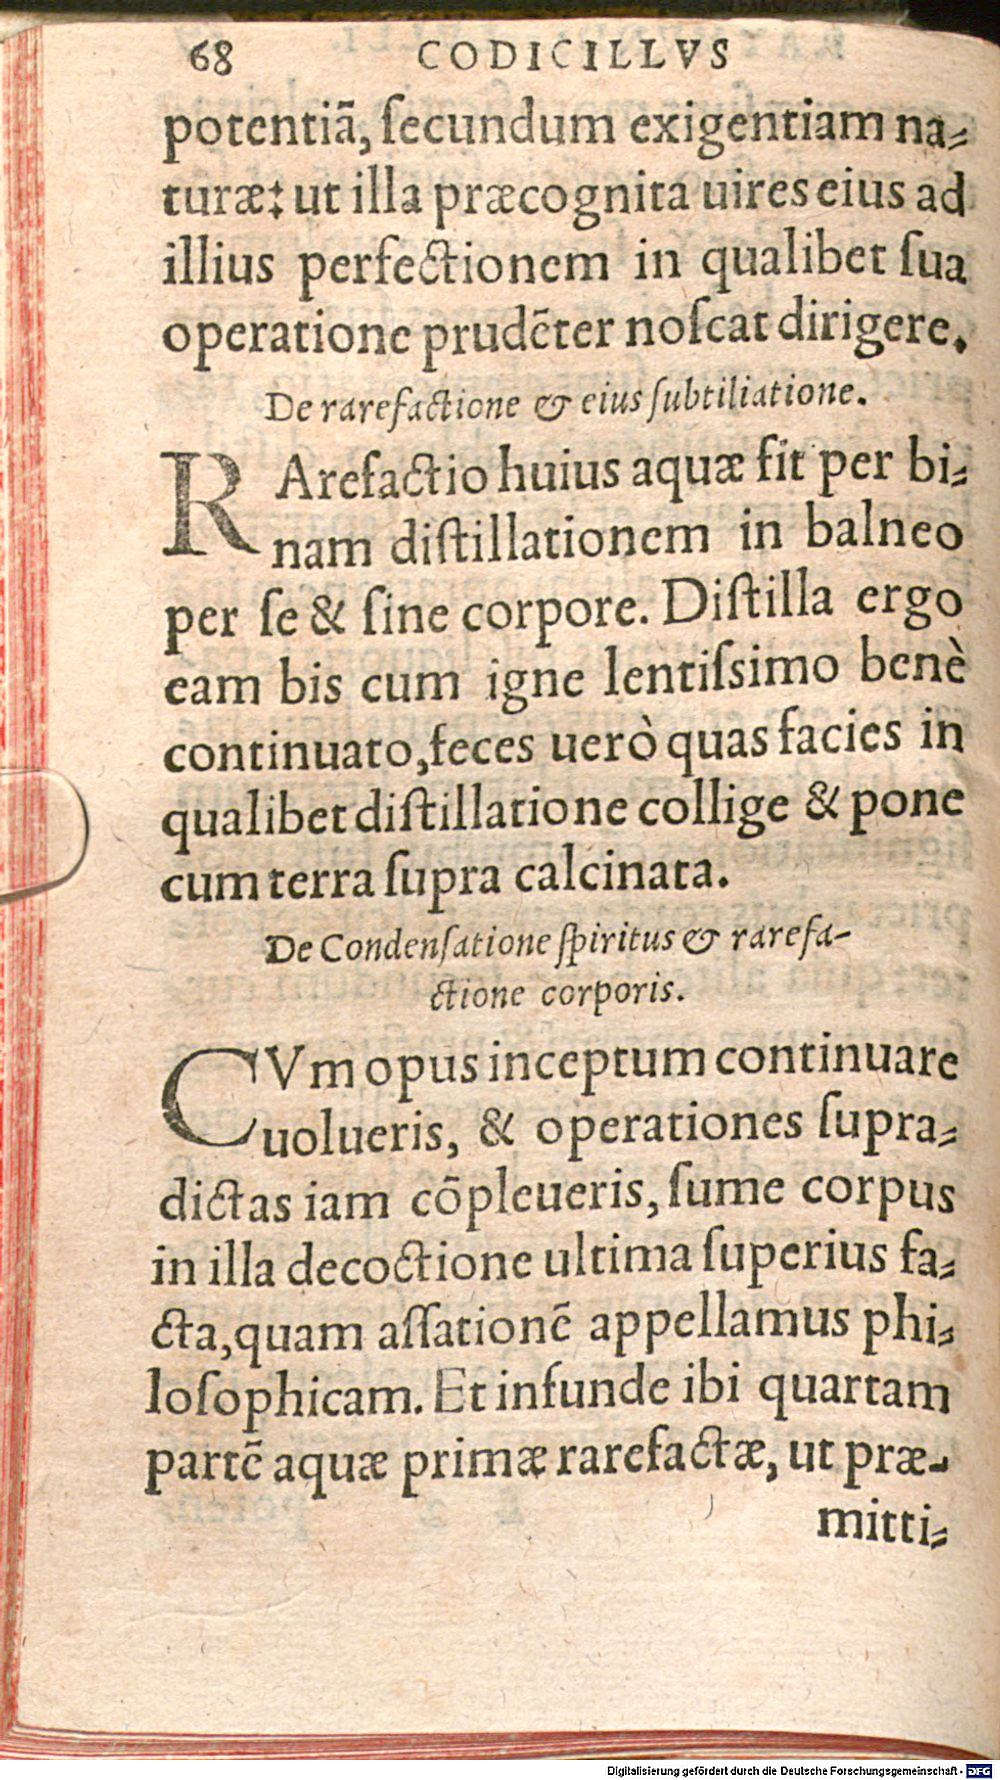 68 CODICILLVS
potentiã, ſecundum exigentiam na⸗
turæ: ut illa præcognita uires eius ad
illius perfectionem in qualibet ſua
operatione prudẽter noſcat dirigere.
De rarefactione & eius ſubtiliatione.
RArefactio huius aquæ fit per bi⸗
nam diſtillationem in balneo
per ſe & ſine corpore. Diſtilla ergo
eam bis cum igne lentiſsimo benè
continuato, feces uerò quas facies in
qualibet diſtillatione collige & pone
cum terra ſupra calcinata.
De Condenſatione ſpiritus & rarefa-
ctione corporis.
CVm opus inceptum continuare
uolueris, & operationes ſupra⸗
dictas iam cõpleueris, ſume corpus
in illa decoctione ultima ſuperius fa⸗
cta, quam aſſationẽ appellamus phi⸗
loſophicam. Et infunde ibi quartam
partẽ aquæ primæ rarefactæ, ut præ-
mitti⸗
Digitalisierung gefördert durch die Deutsche Forschungsgemeinschaft - DFG